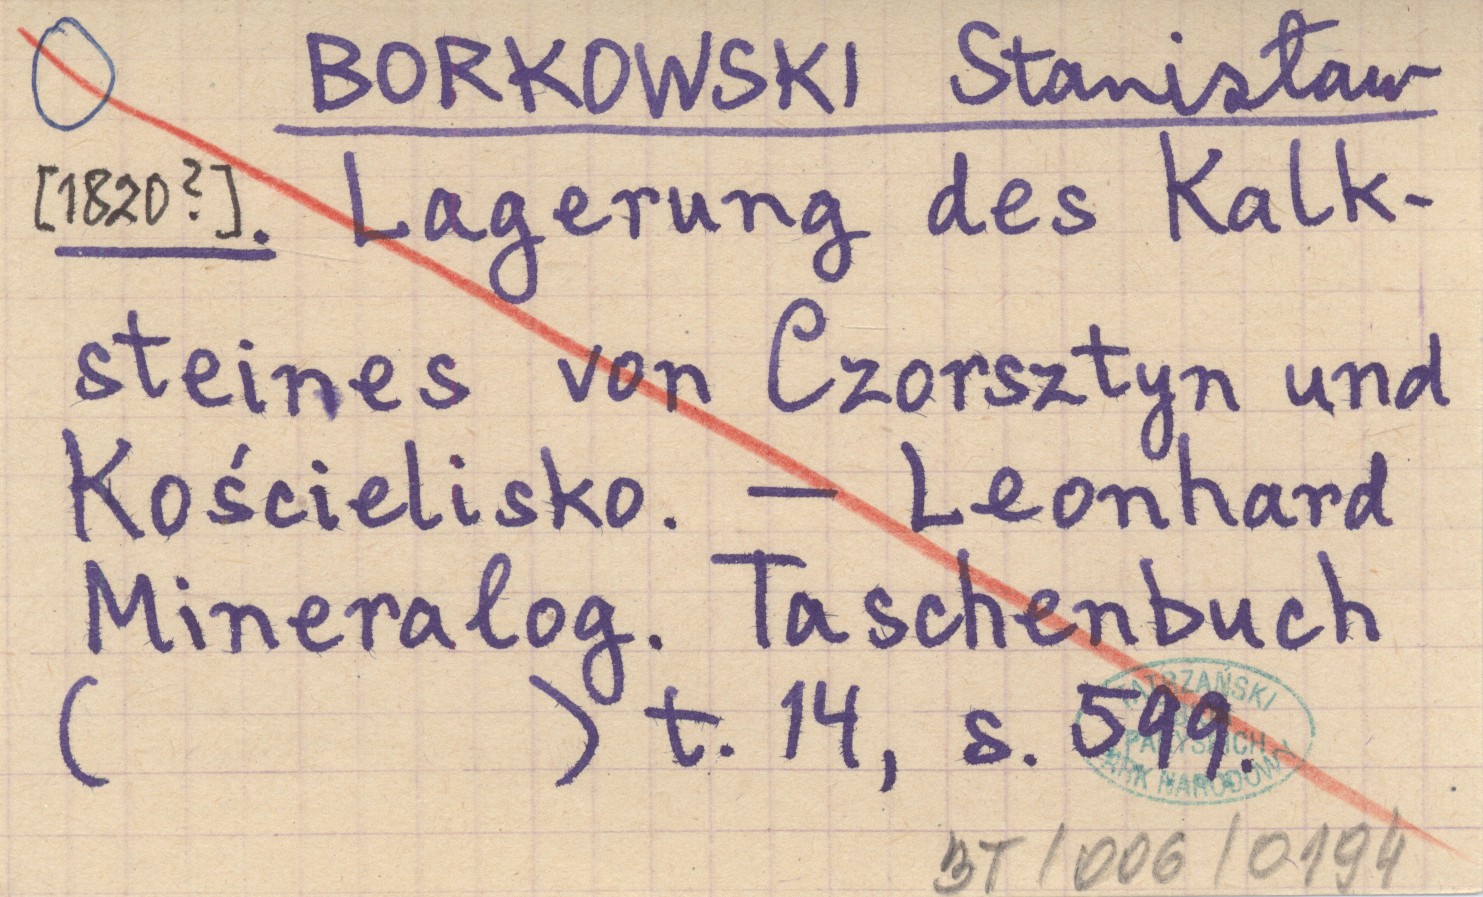 BORKOWSKI Stanisław
[1820?]. Lagerung des Kalk-
steines von Czorsztyn und
Kościelisko. — Leonhard
Mineralog. Taschenbuch
( ) t. 14, s. 599.
TATRZAŃSKI
PARK NARODOWY
BT/006/0194